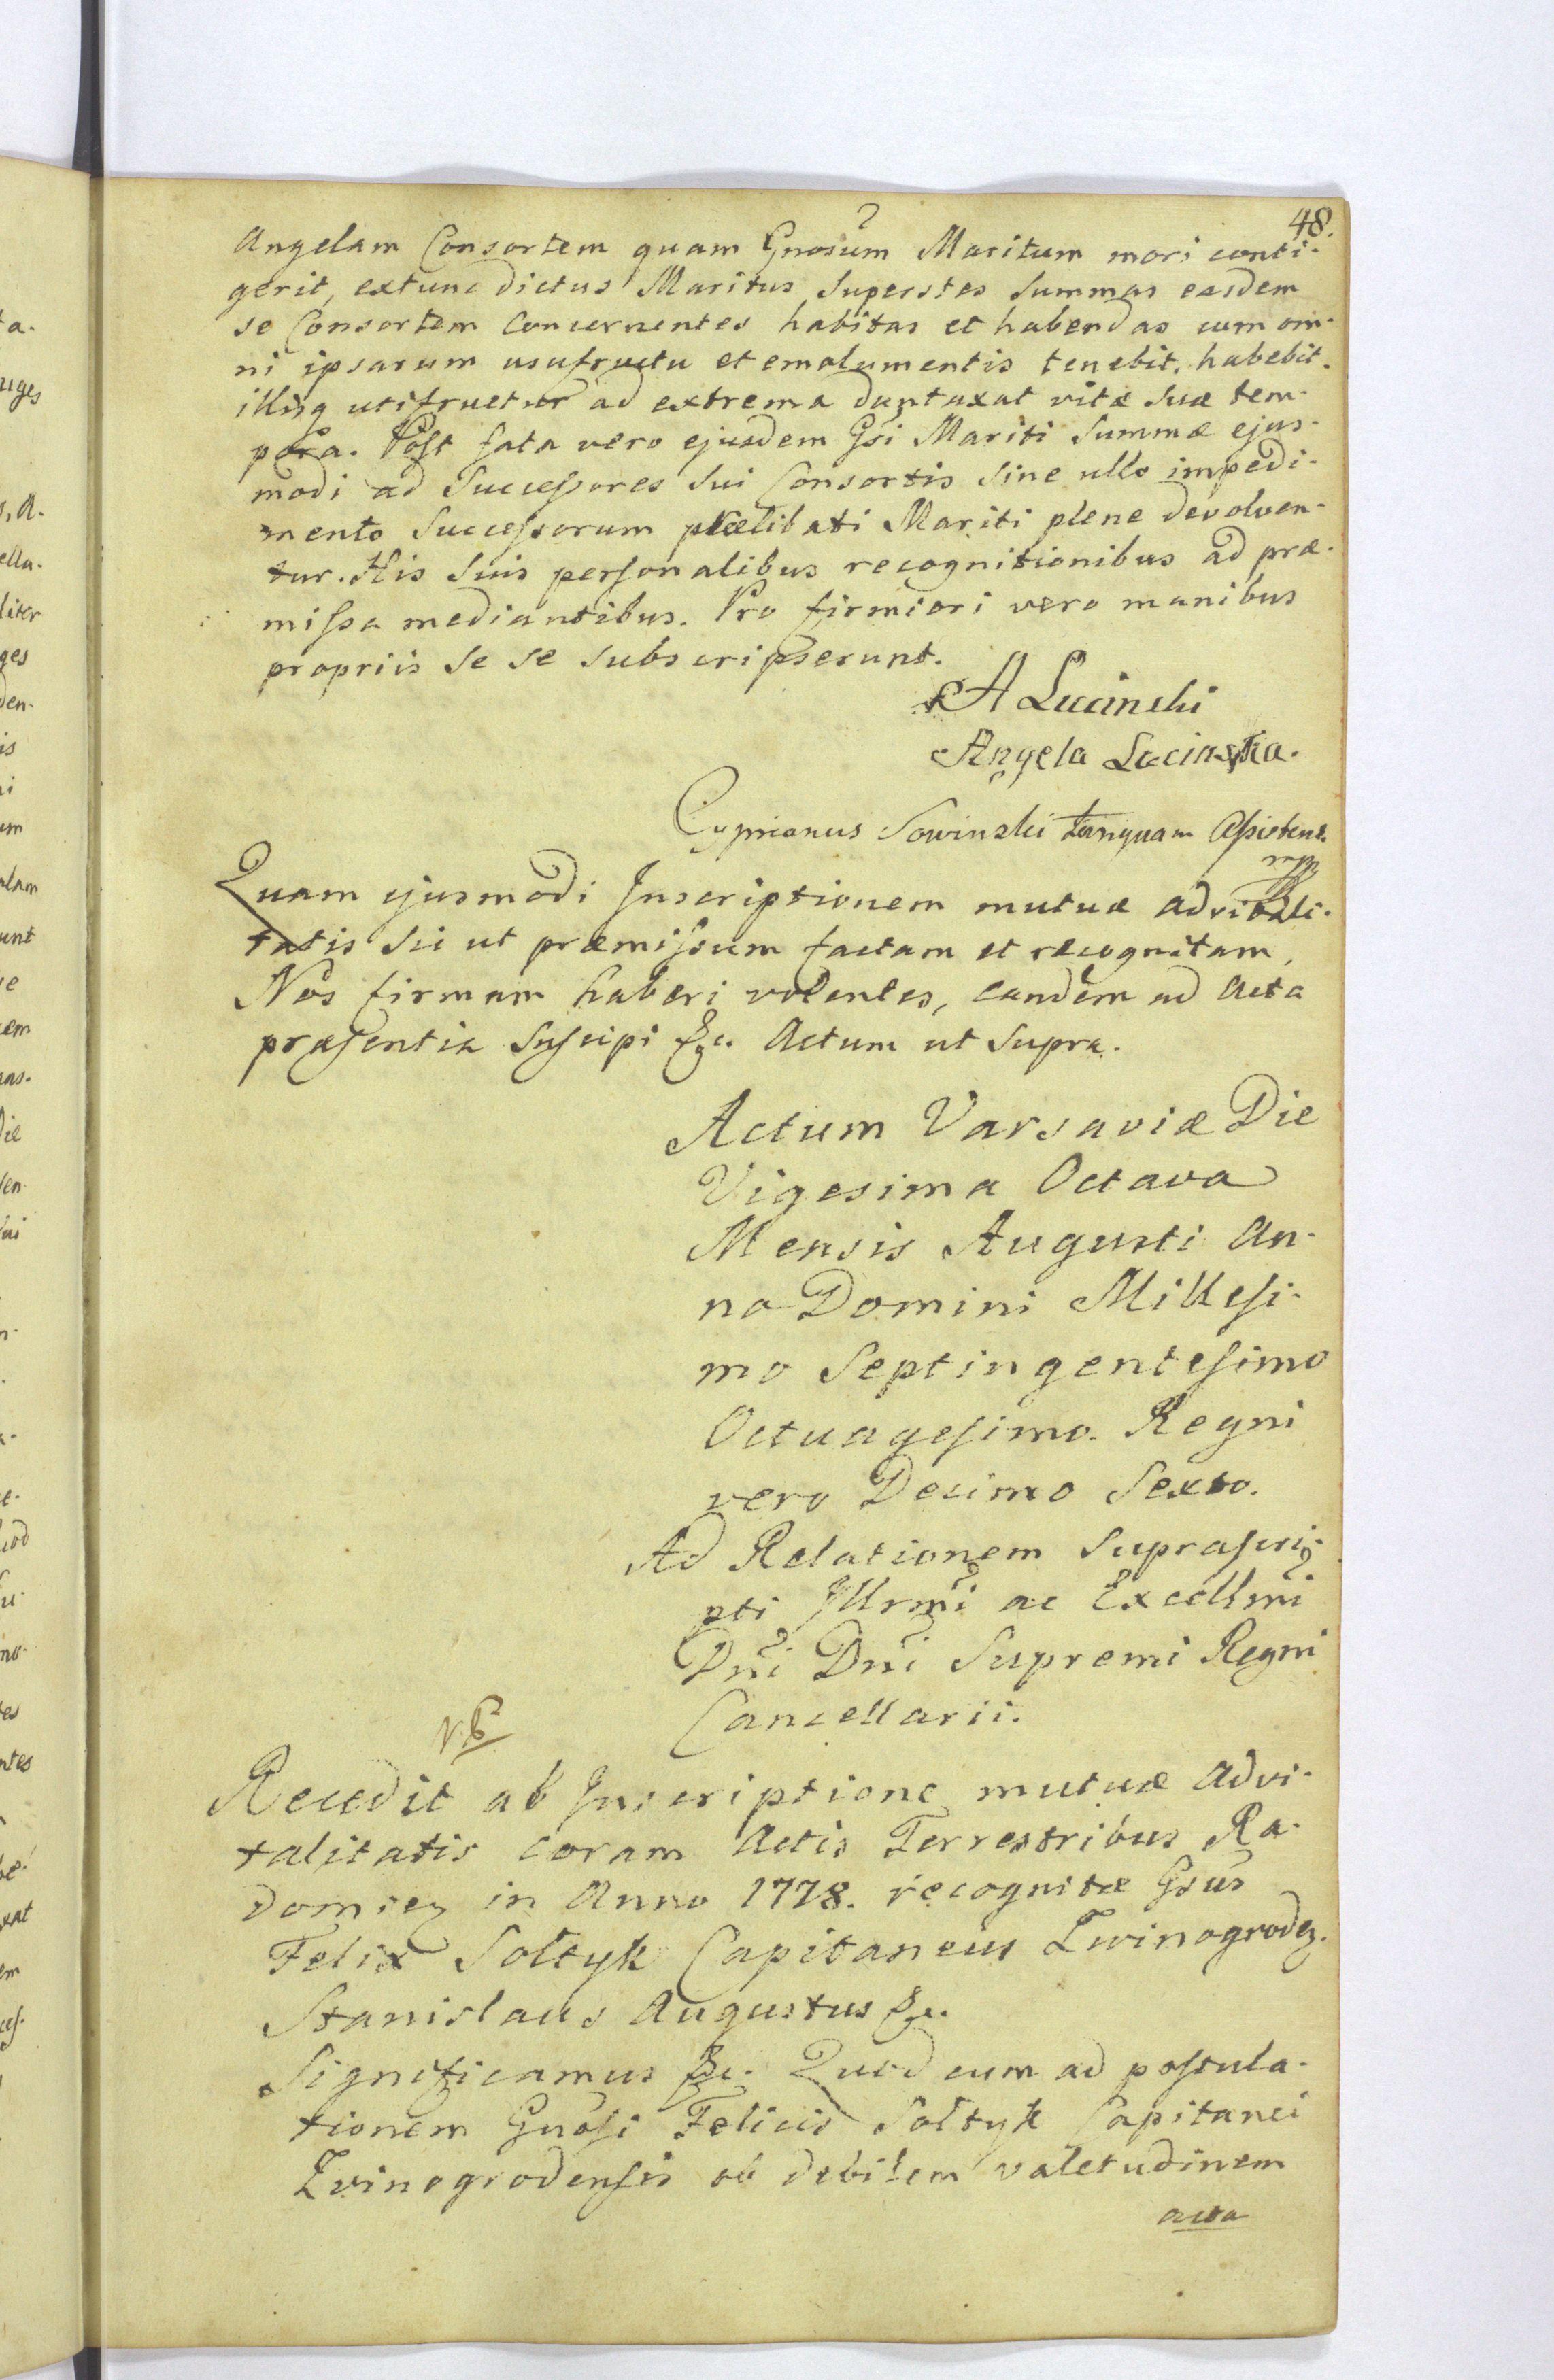 48.
Angelam Consortem quam Gnosum Maritum mori conti-
gerit, extunc dictus Maritus Superstes Summas easdem
se Consortem concernentes habitas et habendas cum om-
ni ipsarum usufructu et emolumentis tenebit, habebit.
illisq utifruetur ad extrema duntaxat vitæ suæ tem-
pora. Post fata vero ejusdem Gsi Mariti Summæ ejus-
modi ad Successores sui Consortis Sine ullo impedi-
mento Successorum prælibati Mariti plene devolven-
tur. His suis personalibus recognitionibus ad præ-
missa mediantibus. Pro firmiori vero manibus
propriis se se subscripserunt.
A Lucinski
Angela Lucinska.
Cyprianus Sowinski tanquam Assistens
mpp
Quam ejusmodi Inscriptionem mutuæ advitali-
tatis sic ut præmissum factam et recognitam,
Nos firmam haberi volentes, eandem ad Acta
præsentia Suscipi &c. Actum ut Supra.
Actum Varsaviæ Die
Vigesima Octava
Mensis Augusti An-
no Domini Millesi-
mo Septingentesimo
Octuagesimo. Regni
vero Decimo Sexto.
Ad Relationem Suprascri-
pti Illrmi ac Excellmi
Dni Dni Supremi Regni
Cancellarii.
Recedit ab Inscriptione mutuæ Advi-
talitatis coram Actis Terrestribus Ra-
domien in Anno 1778. recognitæ Gsus
Felix Soltyk Capitaneus Zwinogroden.
Stanislaus Augustus &c.
Significamus &c. Quod cum ad postula-
tionem Gnosi Felicis Soltyk Capitanei
Zvinogrodensis ob debilem valetudinem
acta